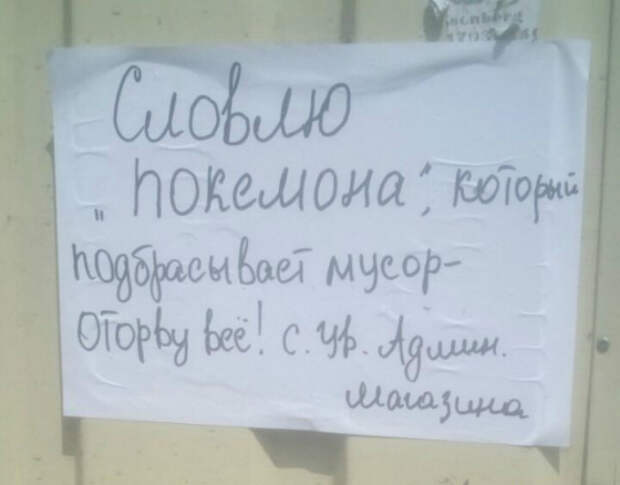 Словлю
„покемона", который
подбрасывает мусор-
оторву всё! с. ув. Админ.
магазина